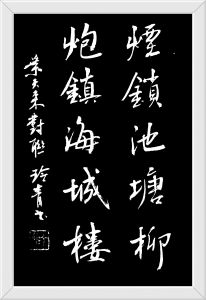 煙鎖池塘柳
炮鎮海城樓
葉天來對聯 玲青書